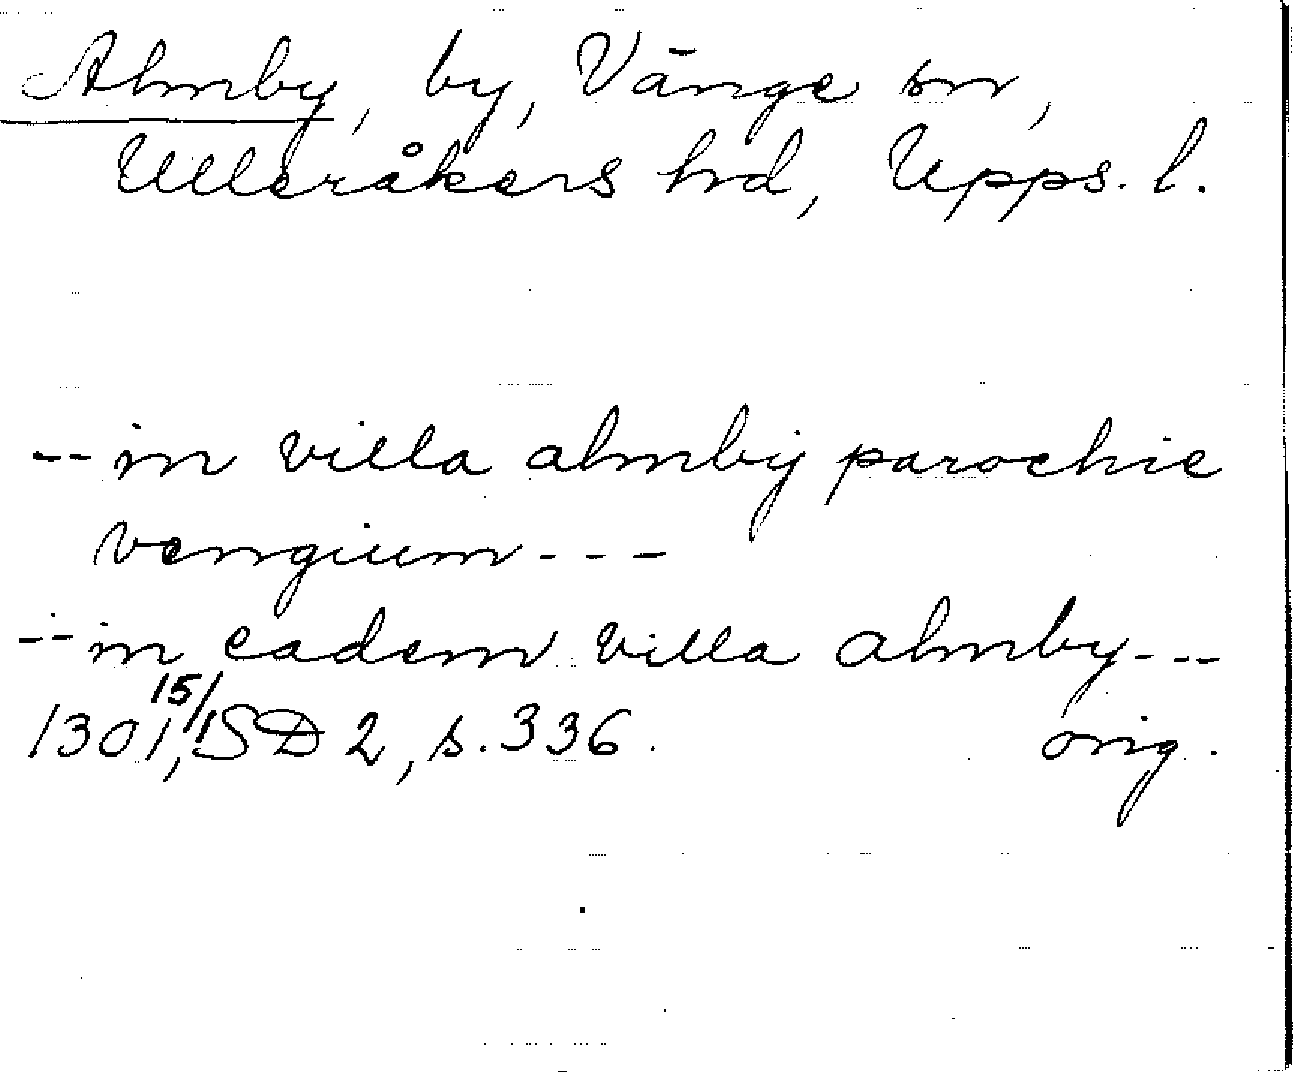 Almby, by, Vänge sn,
Ulleråkers hd, Upps. l.
-- in villa almby parochie
vengium - - -
-- in eadem villa almby - - -
1301, 15/1 SD 2, s. 336. orig.